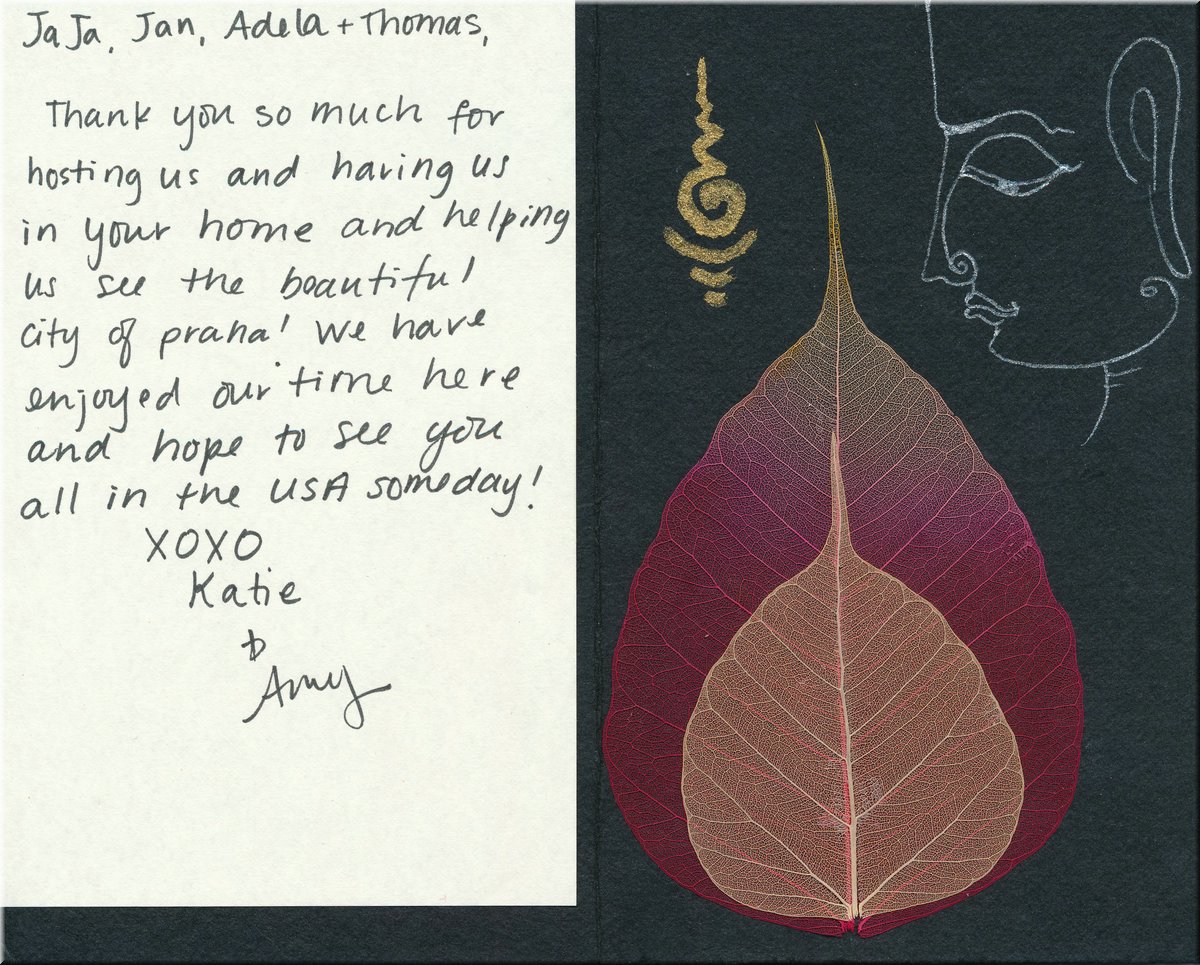 JaJa, Jan, Adela + Thomas,
Thank you so much for
hosting us and having us
in your home and helping
us see the beautiful
city of praha! We have
enjoyed our time here
and hope to see you
all in the USA someday!
XOXO
Katie
&
Amy